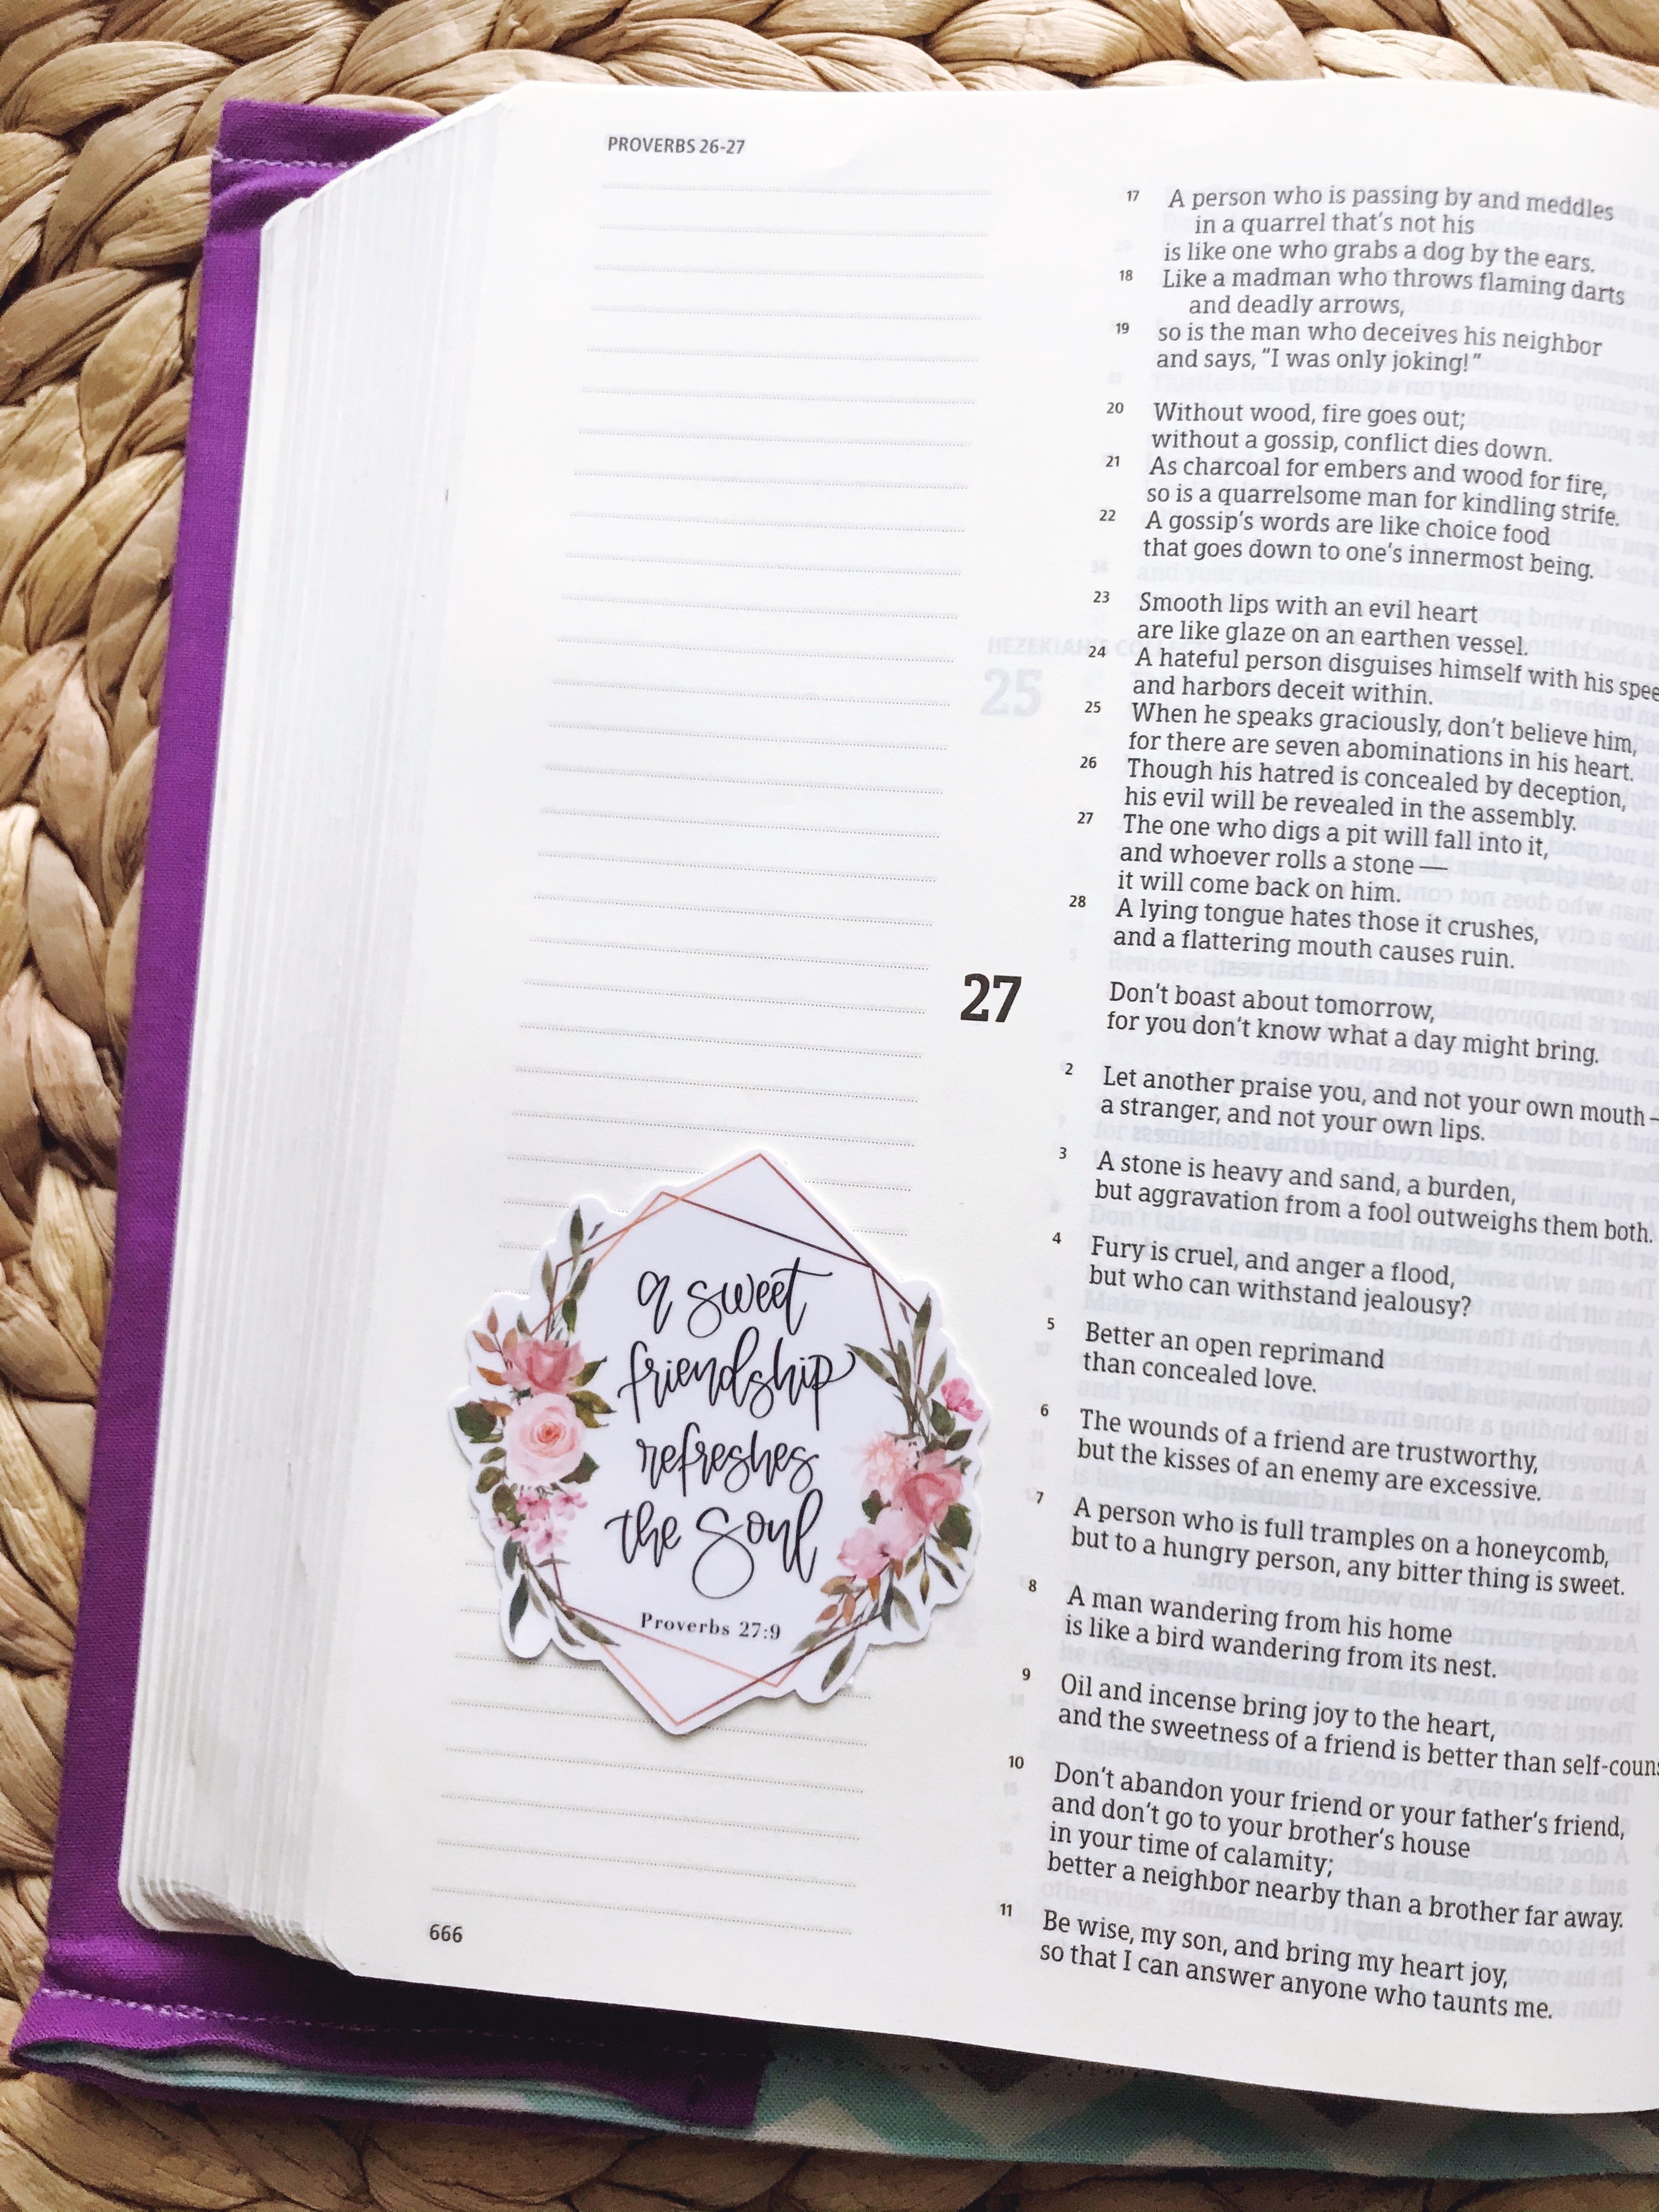 PROVERBS 26-27
17 A person who is passing by and meddles
in a quarrel that's not his
is like one who grabs a dog by the ears.
18 Like a madman who throws flaming darts
and deadly arrows,
19 so is the man who deceives his neighbor
and says, "I was only joking!"
20 Without wood, fire goes out;
without a gossip, conflict dies down.
21 As charcoal for embers and wood for fire,
so is a quarrelsome man for kindling strife.
22 A gossip's words are like choice food
that goes down to one's innermost being.
23 Smooth lips with an evil heart
are like glaze on an earthen vessel.
24 A hateful person disguises himself with his spee
and harbors deceit within.
25 When he speaks graciously, don't believe him,
for there are seven abominations in his heart.
26 Though his hatred is concealed by deception,
his evil will be revealed in the assembly.
27 The one who digs a pit will fall into it,
and whoever rolls a stone —
it will come back on him.
28 A lying tongue hates those it crushes,
and a flattering mouth causes ruin.
27 Don't boast about tomorrow,
for you don't know what a day might bring.
2 Let another praise you, and not your own mouth —
a stranger, and not your own lips.
3 A stone is heavy and sand, a burden,
but aggravation from a fool outweighs them both.
4 Fury is cruel, and anger a flood,
but who can withstand jealousy?
5 Better an open reprimand
than concealed love.
6 The wounds of a friend are trustworthy,
but the kisses of an enemy are excessive.
7 A person who is full tramples on a honeycomb,
but to a hungry person, any bitter thing is sweet.
8 A man wandering from his home
is like a bird wandering from its nest.
9 Oil and incense bring joy to the heart,
and the sweetness of a friend is better than self-couns
10 Don't abandon your friend or your father's friend,
and don't go to your brother's house
in your time of calamity;
better a neighbor nearby than a brother far away.
11 Be wise, my son, and bring my heart joy,
so that I can answer anyone who taunts me.
a sweet
friendship
refreshes
the Soul
Proverbs 27:9
666